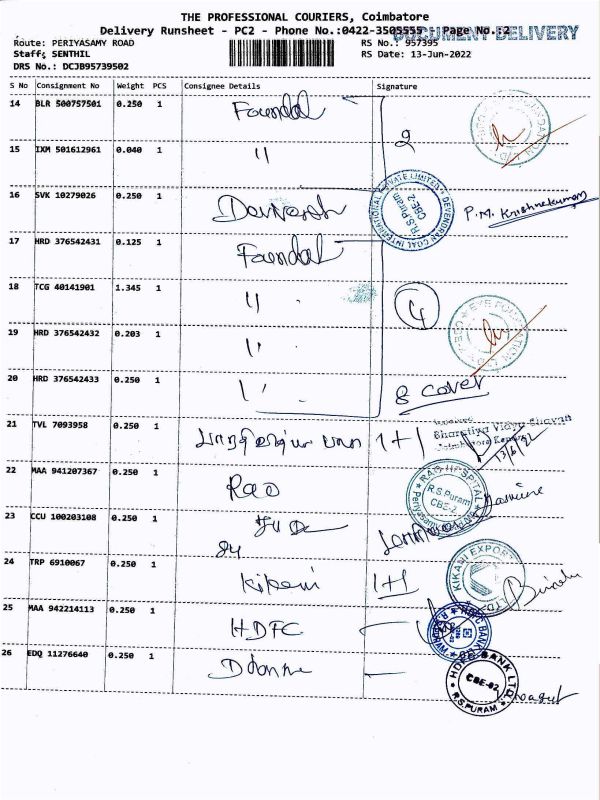 THE PROFESSIONAL COURIERS, Coimbatore
Delivery Runsheet - PC2 - Phone No.:0422-3505555 Page No.:2
DOCUMENT DELIVERY
Route: PERIYASAMY ROAD RS No.: 957395
Staff: SENTHIL RS Date: 13-Jun-2022
DRS No.: DCJB95739502
S No Consignment No Weight PCS Consignee Details Signature
14 BLR 500757501 0.250 1
15 IXM 501612961 0.040 1 〃 2
16 SVK 10279026 0.250 1
DEVENDRAN COAL INTERNATIONAL PRIVATE LIMITED R.S.Puram CBE-2
P.M. Krishnakumar
17 HRD 376542431 0.125 1
18 TCG 40141901 1.345 1 〃 4
19 HRD 376542432 0.203 1 〃
EYE FOUNDATION
20 HRD 376542433 0.250 1 〃 8 cover
21 TVL 7093958 0.250 1 1+1
Bharatiya Vidya Bhavan
Coimbatore Kendra
22 MAA 941207367 0.250 1 Rao
RAO HOSPITAL R.S.Puram CBE-2
23 CCU 100203108 0.250 1
24 TRP 6910067 0.250 1 Kikani 1+1
KIKANI EXPORTS
25 MAA 942214113 0.250 1 HDFC
HDFC BANK
26 EDQ 11276640 0.250 1
HDFC BANK LTD. CBE-02 R.S.PURAM